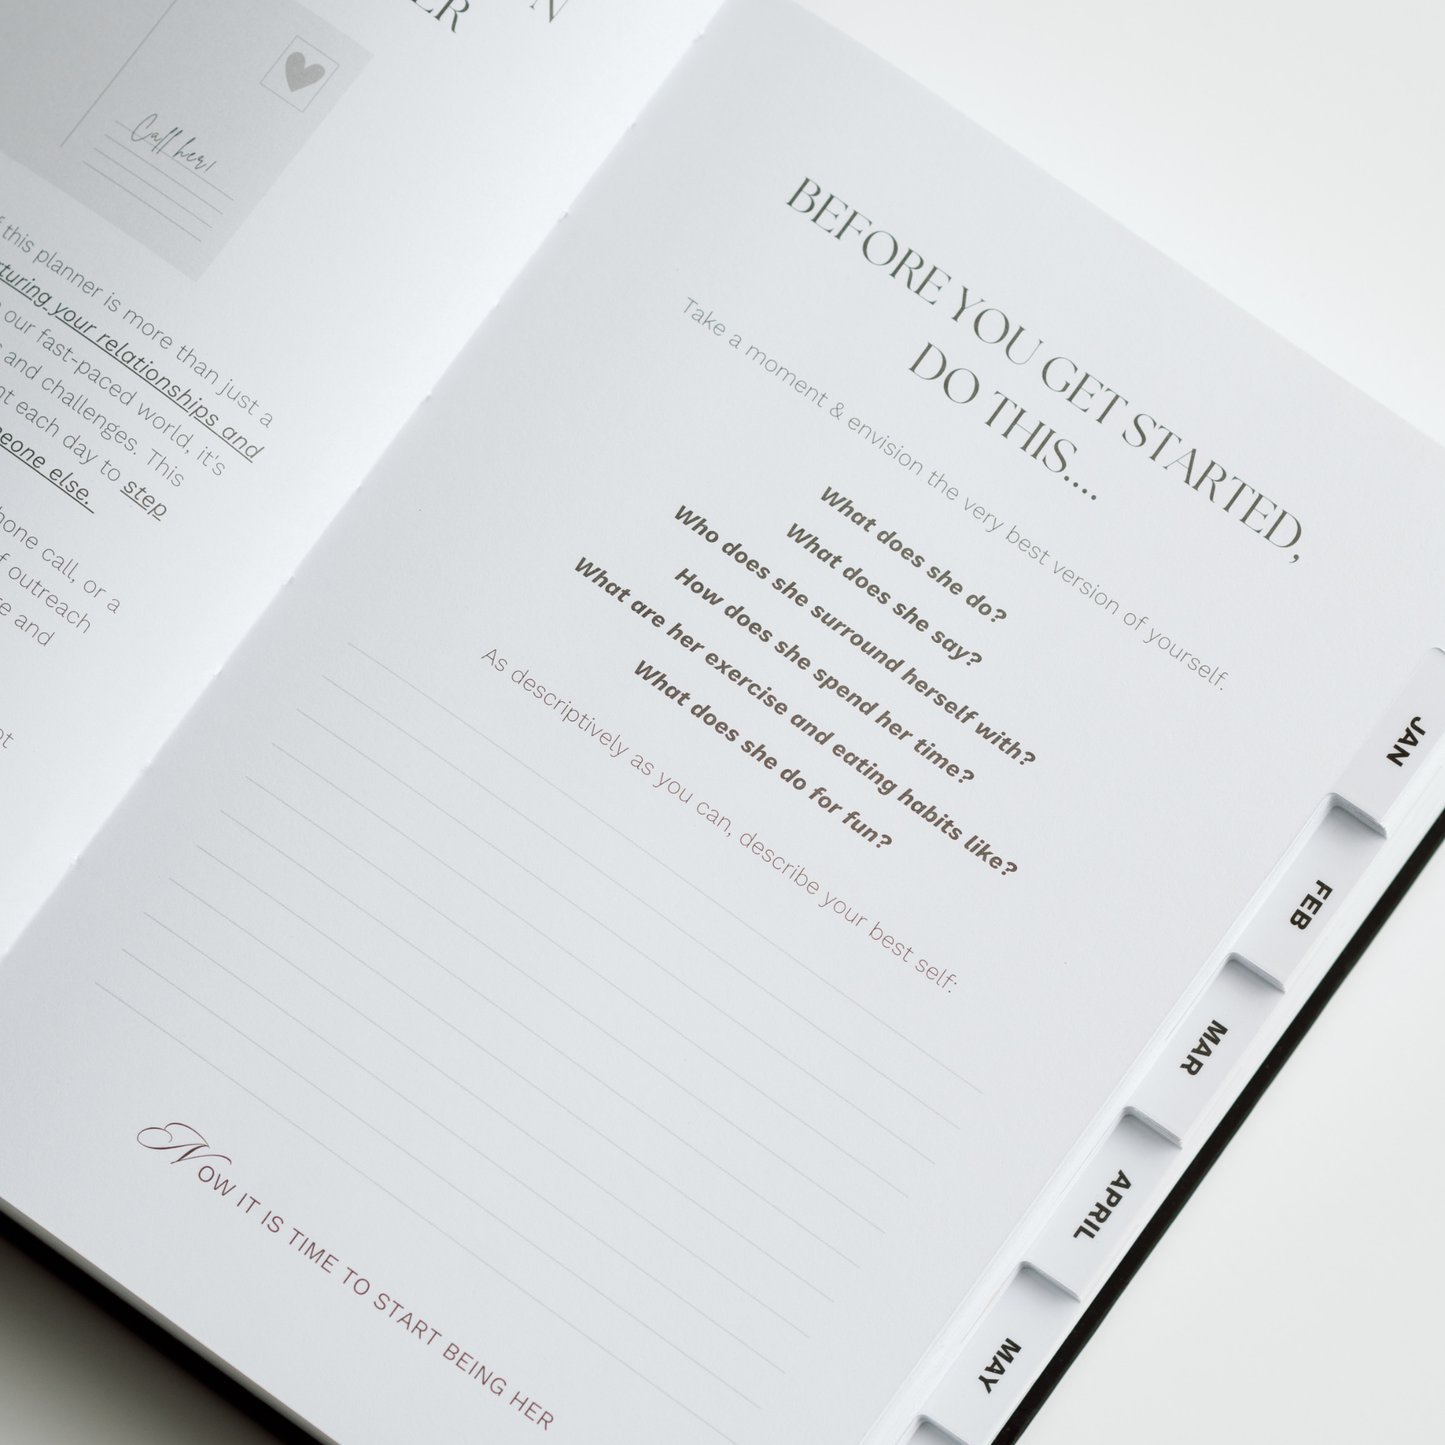 N
ER
Call her!
this planner is more than just a
turing your relationships and
our fast-paced world, it's
and challenges. This
each day to step
eone else.
hone call, or a
f outreach
e and
BEFORE YOU GET STARTED,
DO THIS....
Take a moment & envision the very best version of yourself.
What does she do?
What does she say?
Who does she surround herself with?
How does she spend her time?
What are her exercise and eating habits like?
What does she do for fun?
As descriptively as you can, describe your best self:
NOW IT IS TIME TO START BEING HER
JAN
FEB
MAR
APRIL
MAY